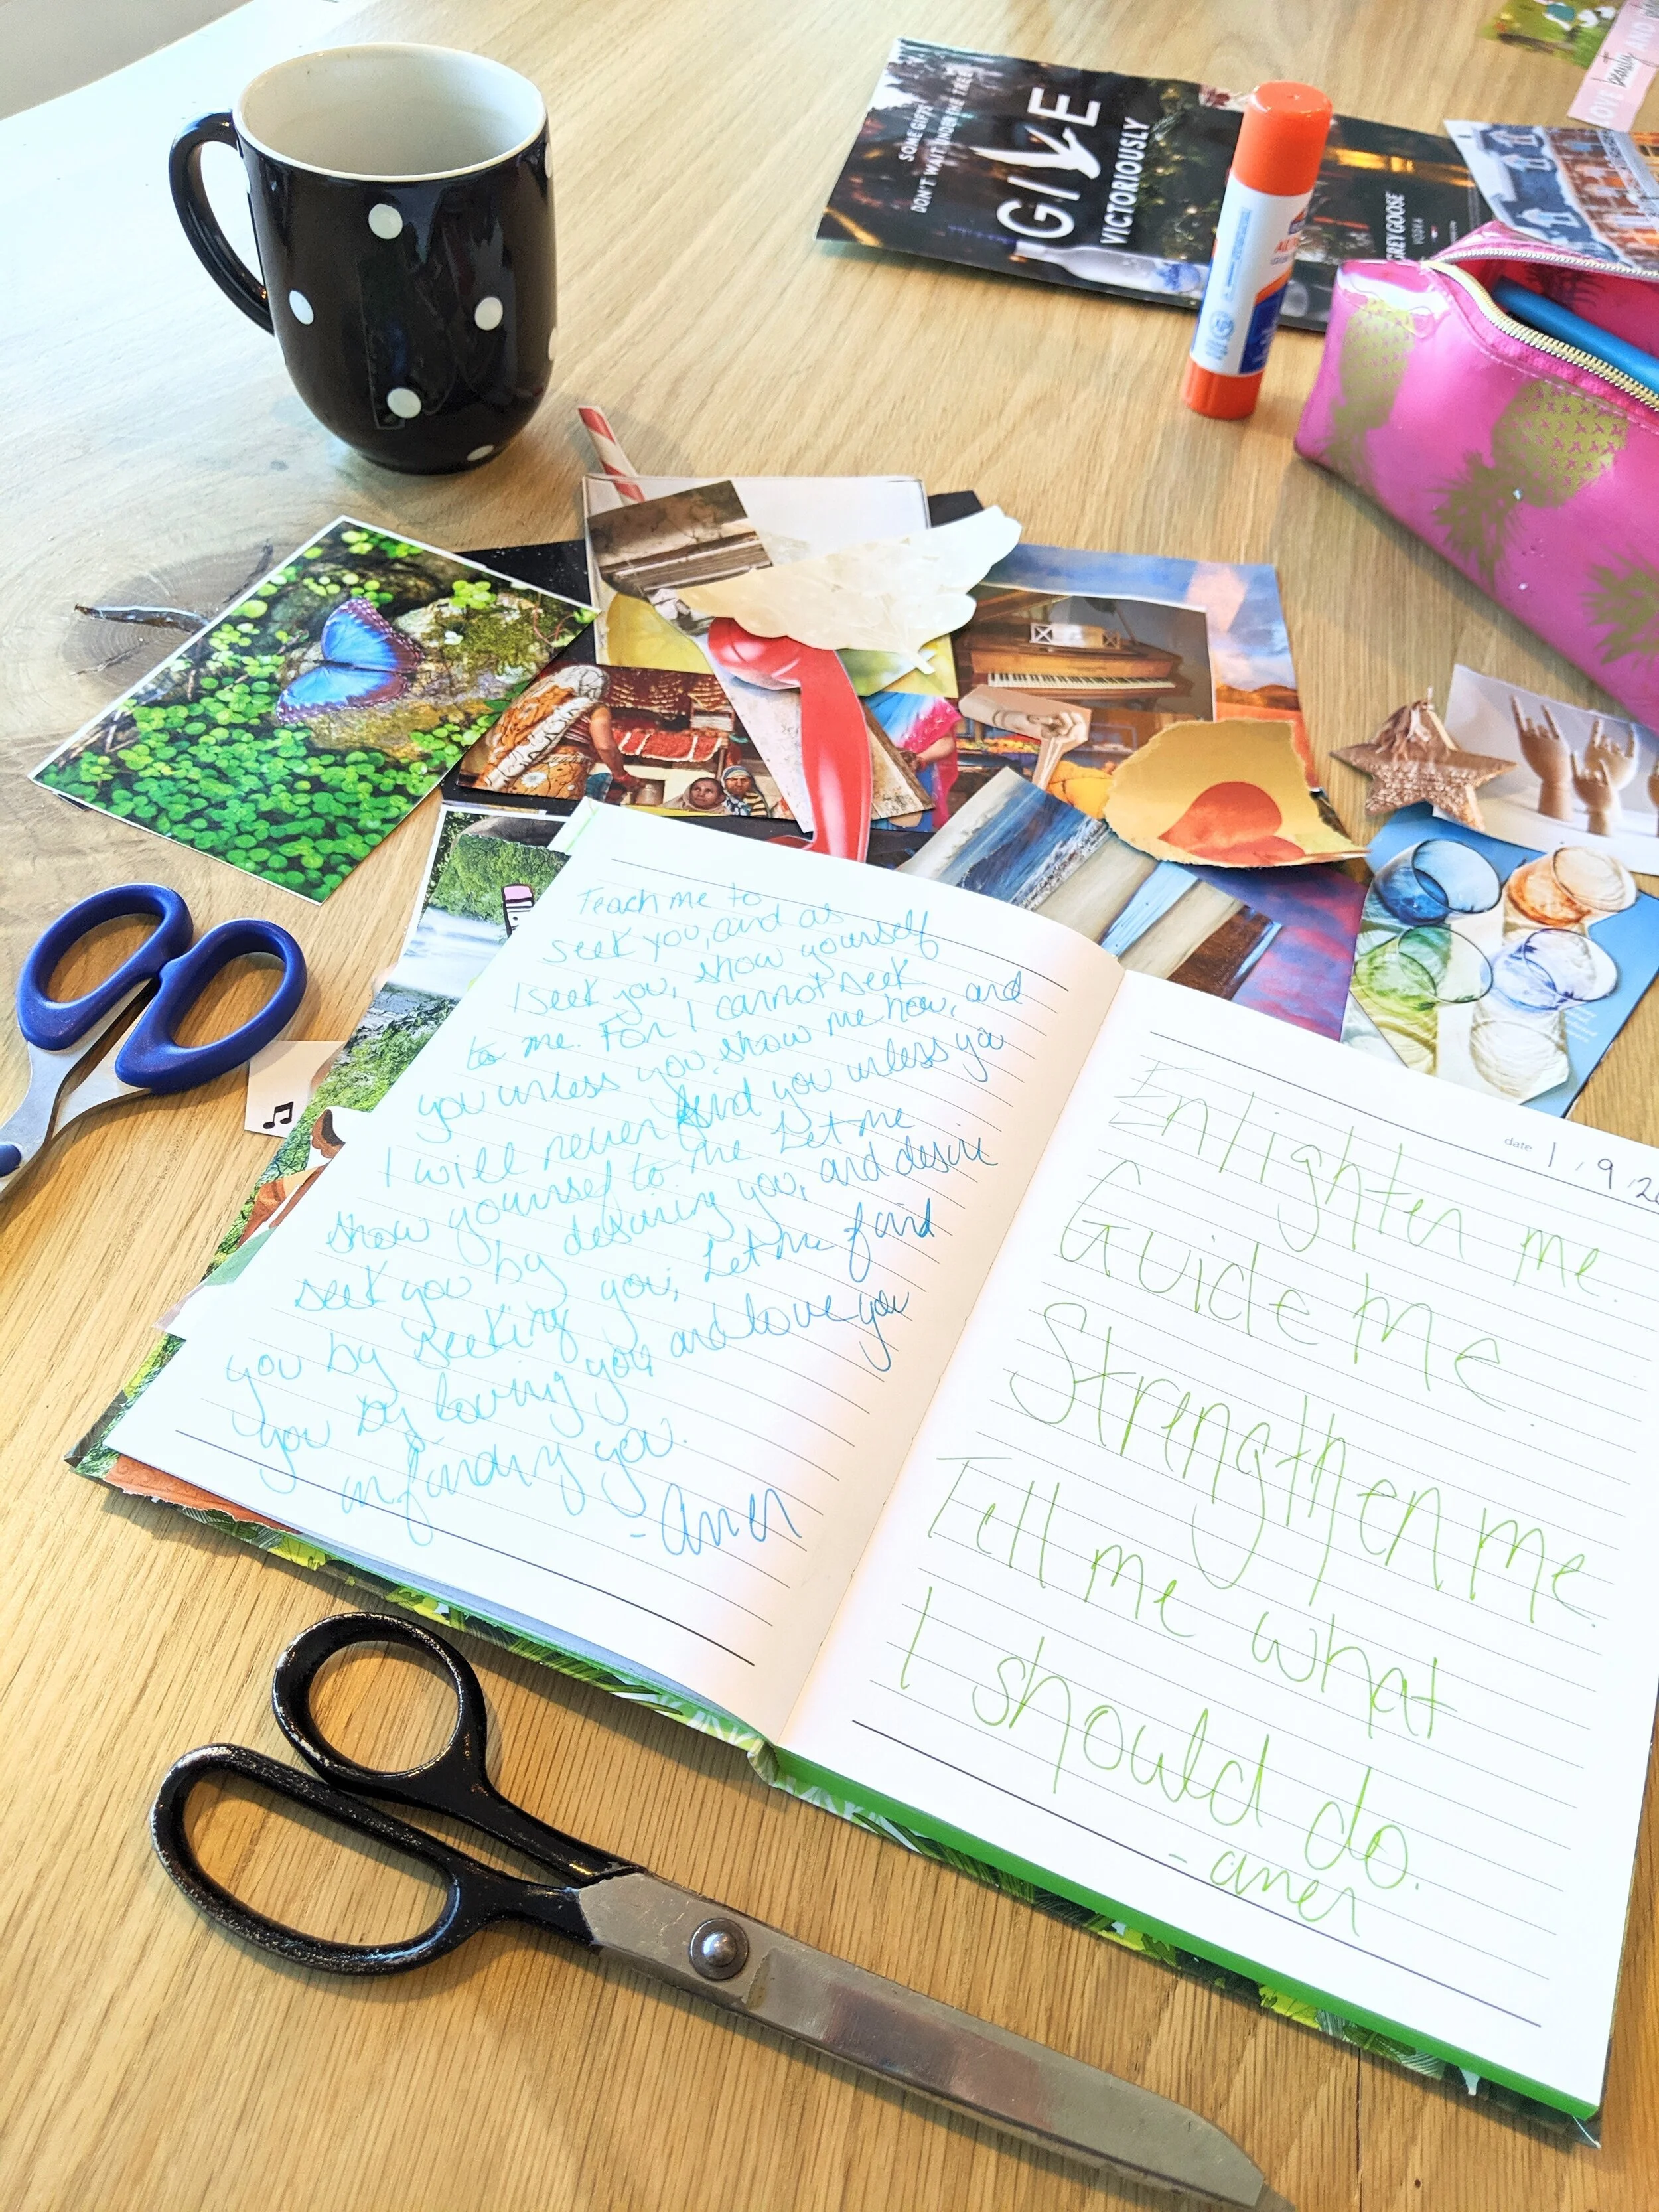 SOME GIFTS
DON'T WAIT UNDER THE TREE
GIVE
VICTORIOUSLY
GREY GOOSE
VODKA
LOVE beauty AND
Teach me to
seek you, and as
I seek you, show yourself
to me. For I cannot seek
you unless you show me how, and
I will never find you unless you
show yourself to me. Let me
seek you by desiring you, and desire
you by seeking you; Let me find
you by loving you and love you
in finding you.
- amen
date 1.9.2
Enlighten me.
Guide me.
Strengthen me.
Tell me what
I should do.
- amen